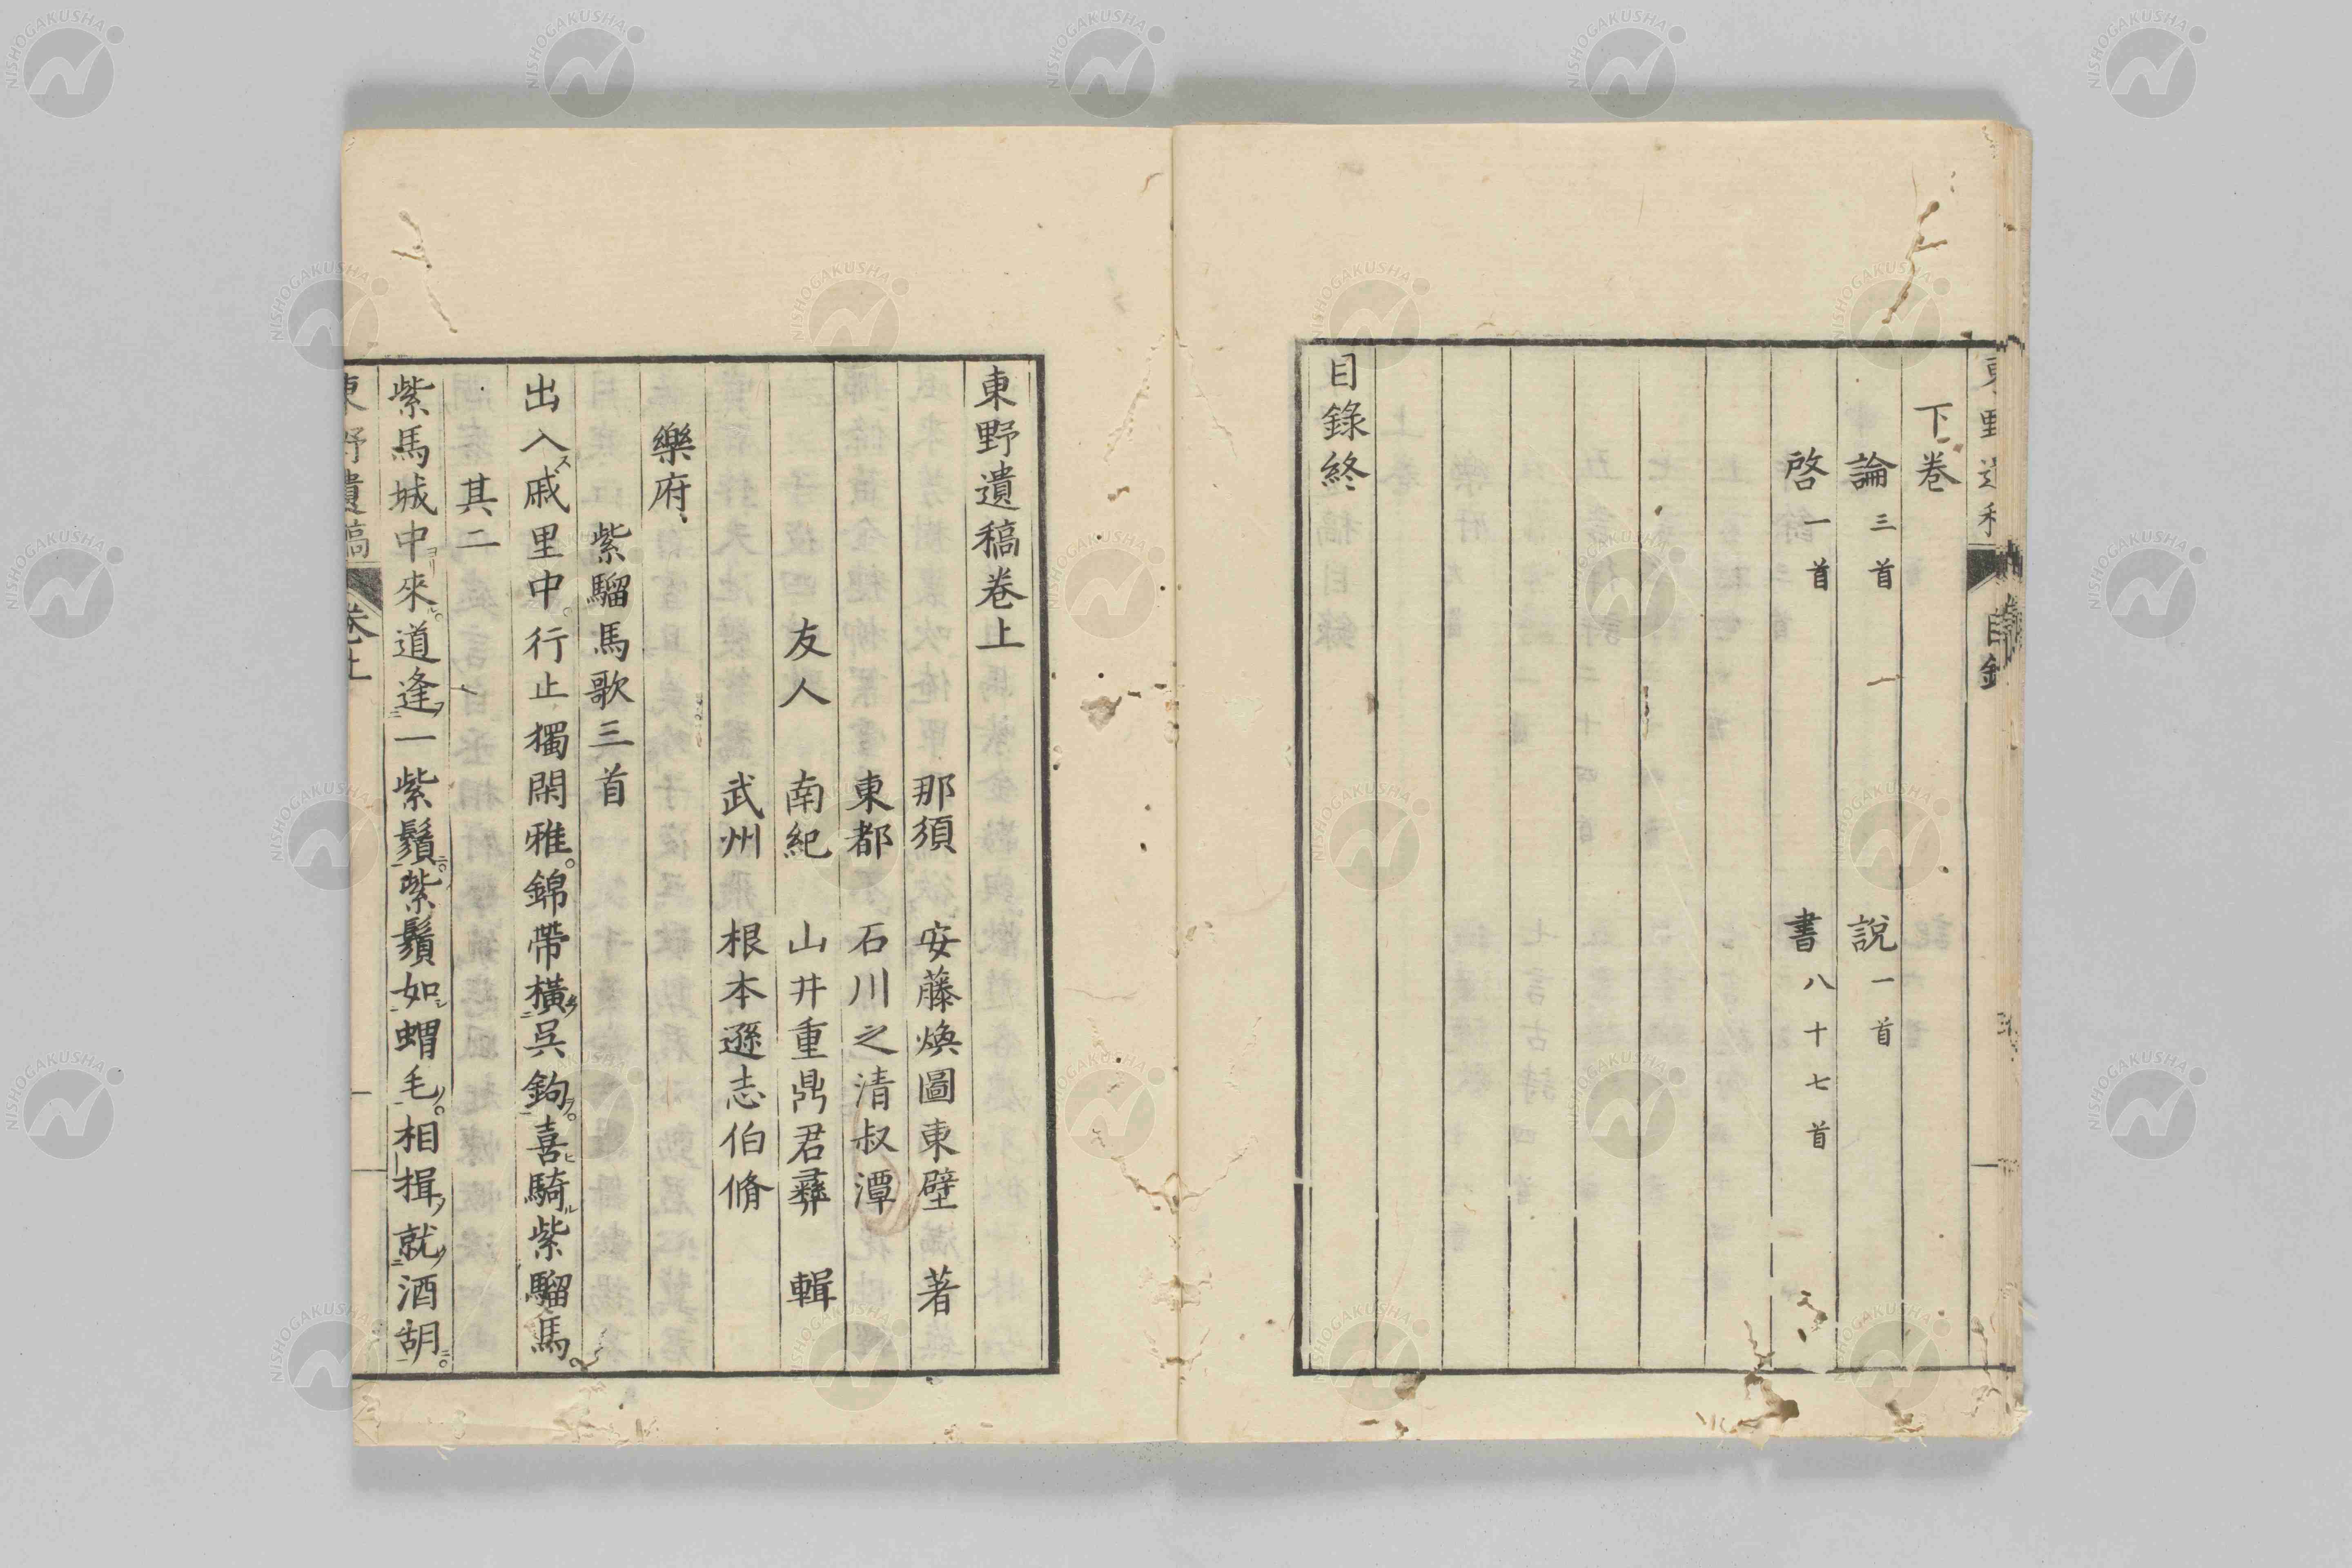 下卷
論 三首 說 一首
啓 一首 書 八十七首
目錄終
東野遺稿卷上
那須 安藤煥圖東壁滿 著
東都 石川之清叔潭
友人 南紀 山井重鼎君彞 輯
武州 根本遜志伯脩
樂府
紫騮馬歌三首
出入戚里中行止獨閑雅錦帶橫吳鉤喜騎紫騮馬
其二
紫馬城中來道逢一紫鬚紫鬚如蝟毛相揖就酒胡
東野遺稿 卷上
NISHOGAKUSHA